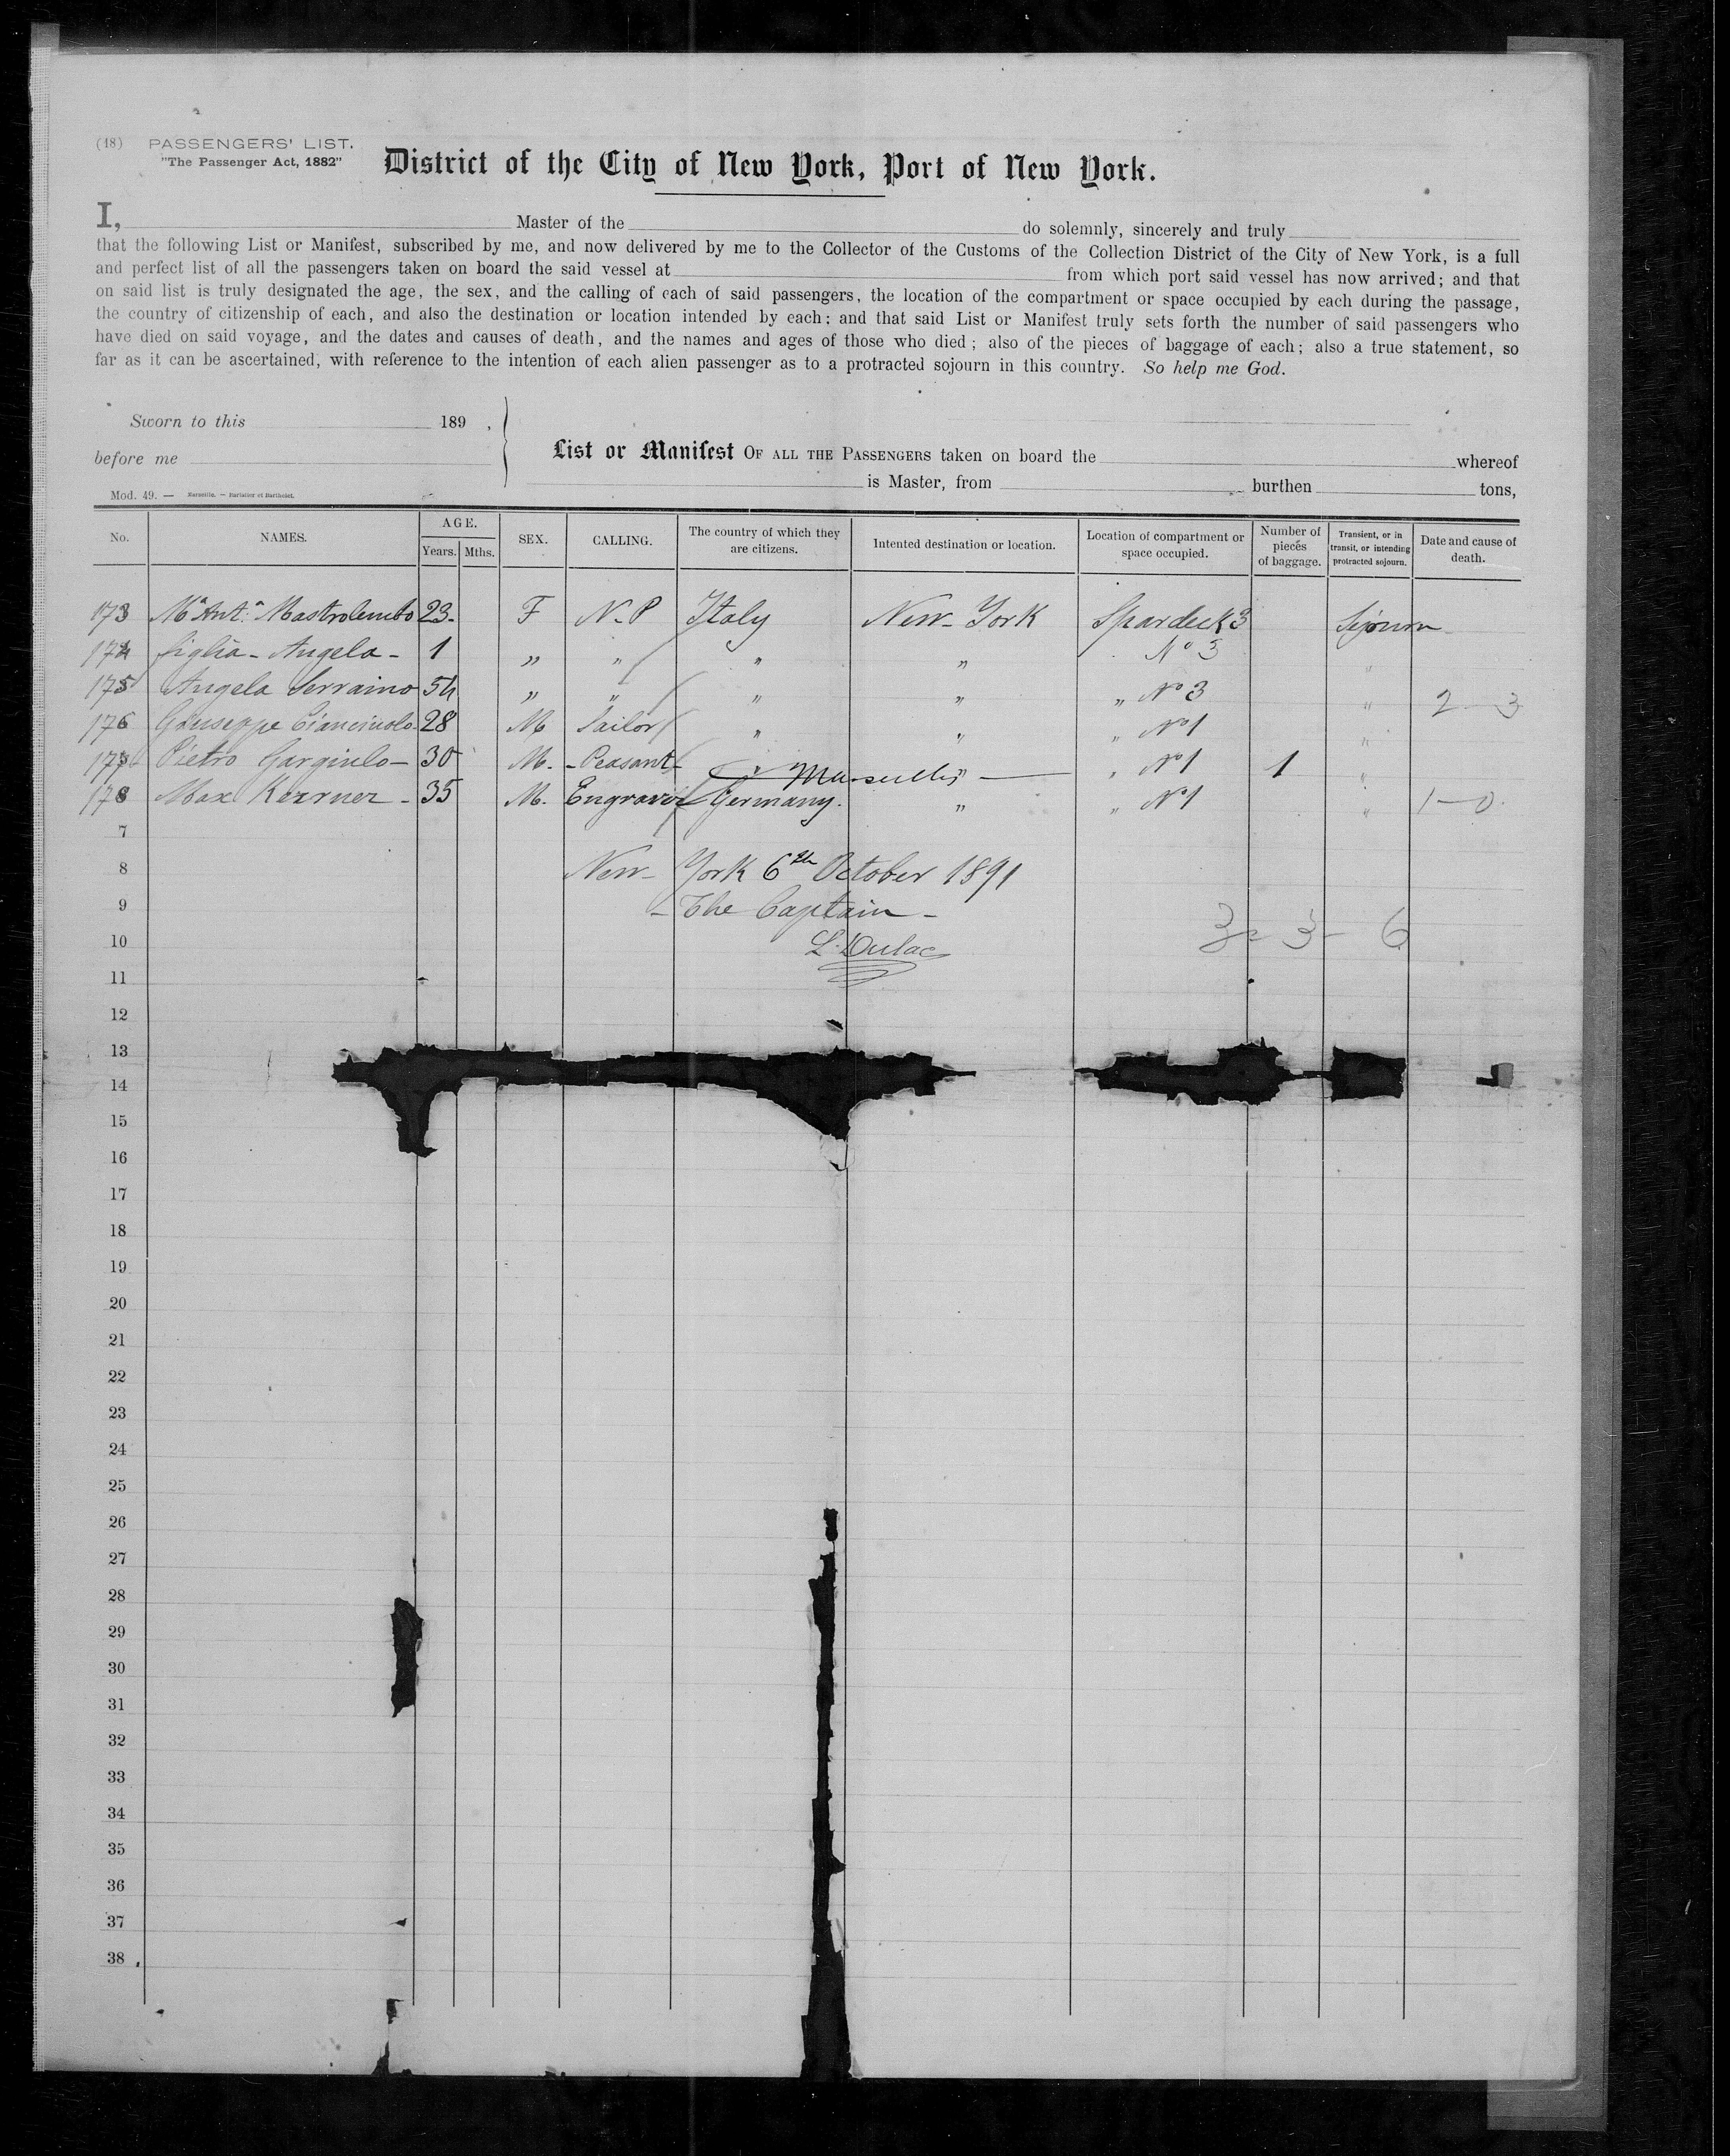 (18) PASSENGERS' LIST.
"The Passenger Act, 1882"
District of the City of New York, Port of New York.
I, Master of the do solemnly, sincerely and truly
that the following List or Manifest, subscribed by me, and now delivered by me to the Collector of the Customs of the Collection District of the City of New York, is a full
and perfect list of all the passengers taken on board the said vessel at from which port said vessel has now arrived; and that
on said list is truly designated the age, the sex, and the calling of each of said passengers, the location of the compartment or space occupied by each during the passage,
the country of citizenship of each, and also the destination or location intended by each; and that said List or Manifest truly sets forth the number of said passengers who
have died on said voyage, and the dates and causes of death, and the names and ages of those who died; also of the pieces of baggage of each; also a true statement, so
far as it can be ascertained, with reference to the intention of each alien passenger as to a protracted sojourn in this country. So help me God.
Sworn to this 189 ,
before me
List or Manifest OF ALL THE PASSENGERS taken on board the whereof
is Master, from burthen tons,
Mod. 49. — Marseille. — Barlatier et Barthelet.
No. NAMES. AGE. Years. Mths. SEX. CALLING. The country of which they are citizens. Intented destination or location. Location of compartment or space occupied. Number of pieces of baggage. Transient, or in transit, or intending protracted sojourn. Date and cause of death.
173 Mª Antª Mastrolembo 23 - F N-P Italy New-York Spardeck 3 Sejourn
174 figlia - Angela - 1 " " " " Nº 3 "
175 Angela Serraino 54 " " " " " Nº 3 " 2-3
176 Giuseppe Cianciuolo 28 M Tailor " " " Nº 1 "
177 Pietro Gargiulo - 30 M. - Peasant - " " " Nº 1 1 "
Marseilles
178 Max Kerrner - 35 M. Engraver Germany. " " Nº 1 " 1-0
7
8 New-York 6th October 1891
9 - The Captain -
10 L. Dulac 3 - 3 - 6
11
12
13
14
15
16
17
18
19
20
21
22
23
24
25
26
27
28
29
30
31
32
33
34
35
36
37
38